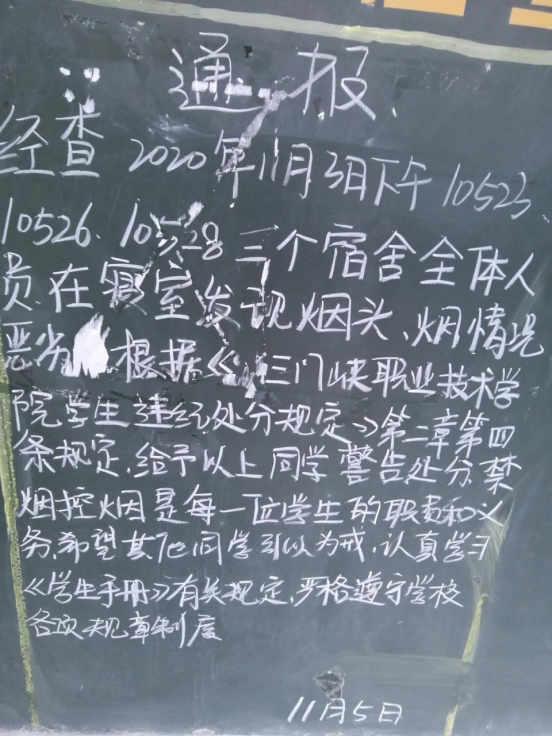 通报
经查 2020年11月3日下午 10523
10526、10528三个宿舍全体人
员在寝室发现烟头、烟情况
恶劣 根据《三门峡职业技术学
院学生违纪处分规定》第二章第四
条规定,给予以上同学警告处分,禁
烟控烟是每一位学生的职责和义
务,希望其他同学引以为戒,认真学习
《学生手册》有关规定,严格遵守学校
各项规章制度
11月5日